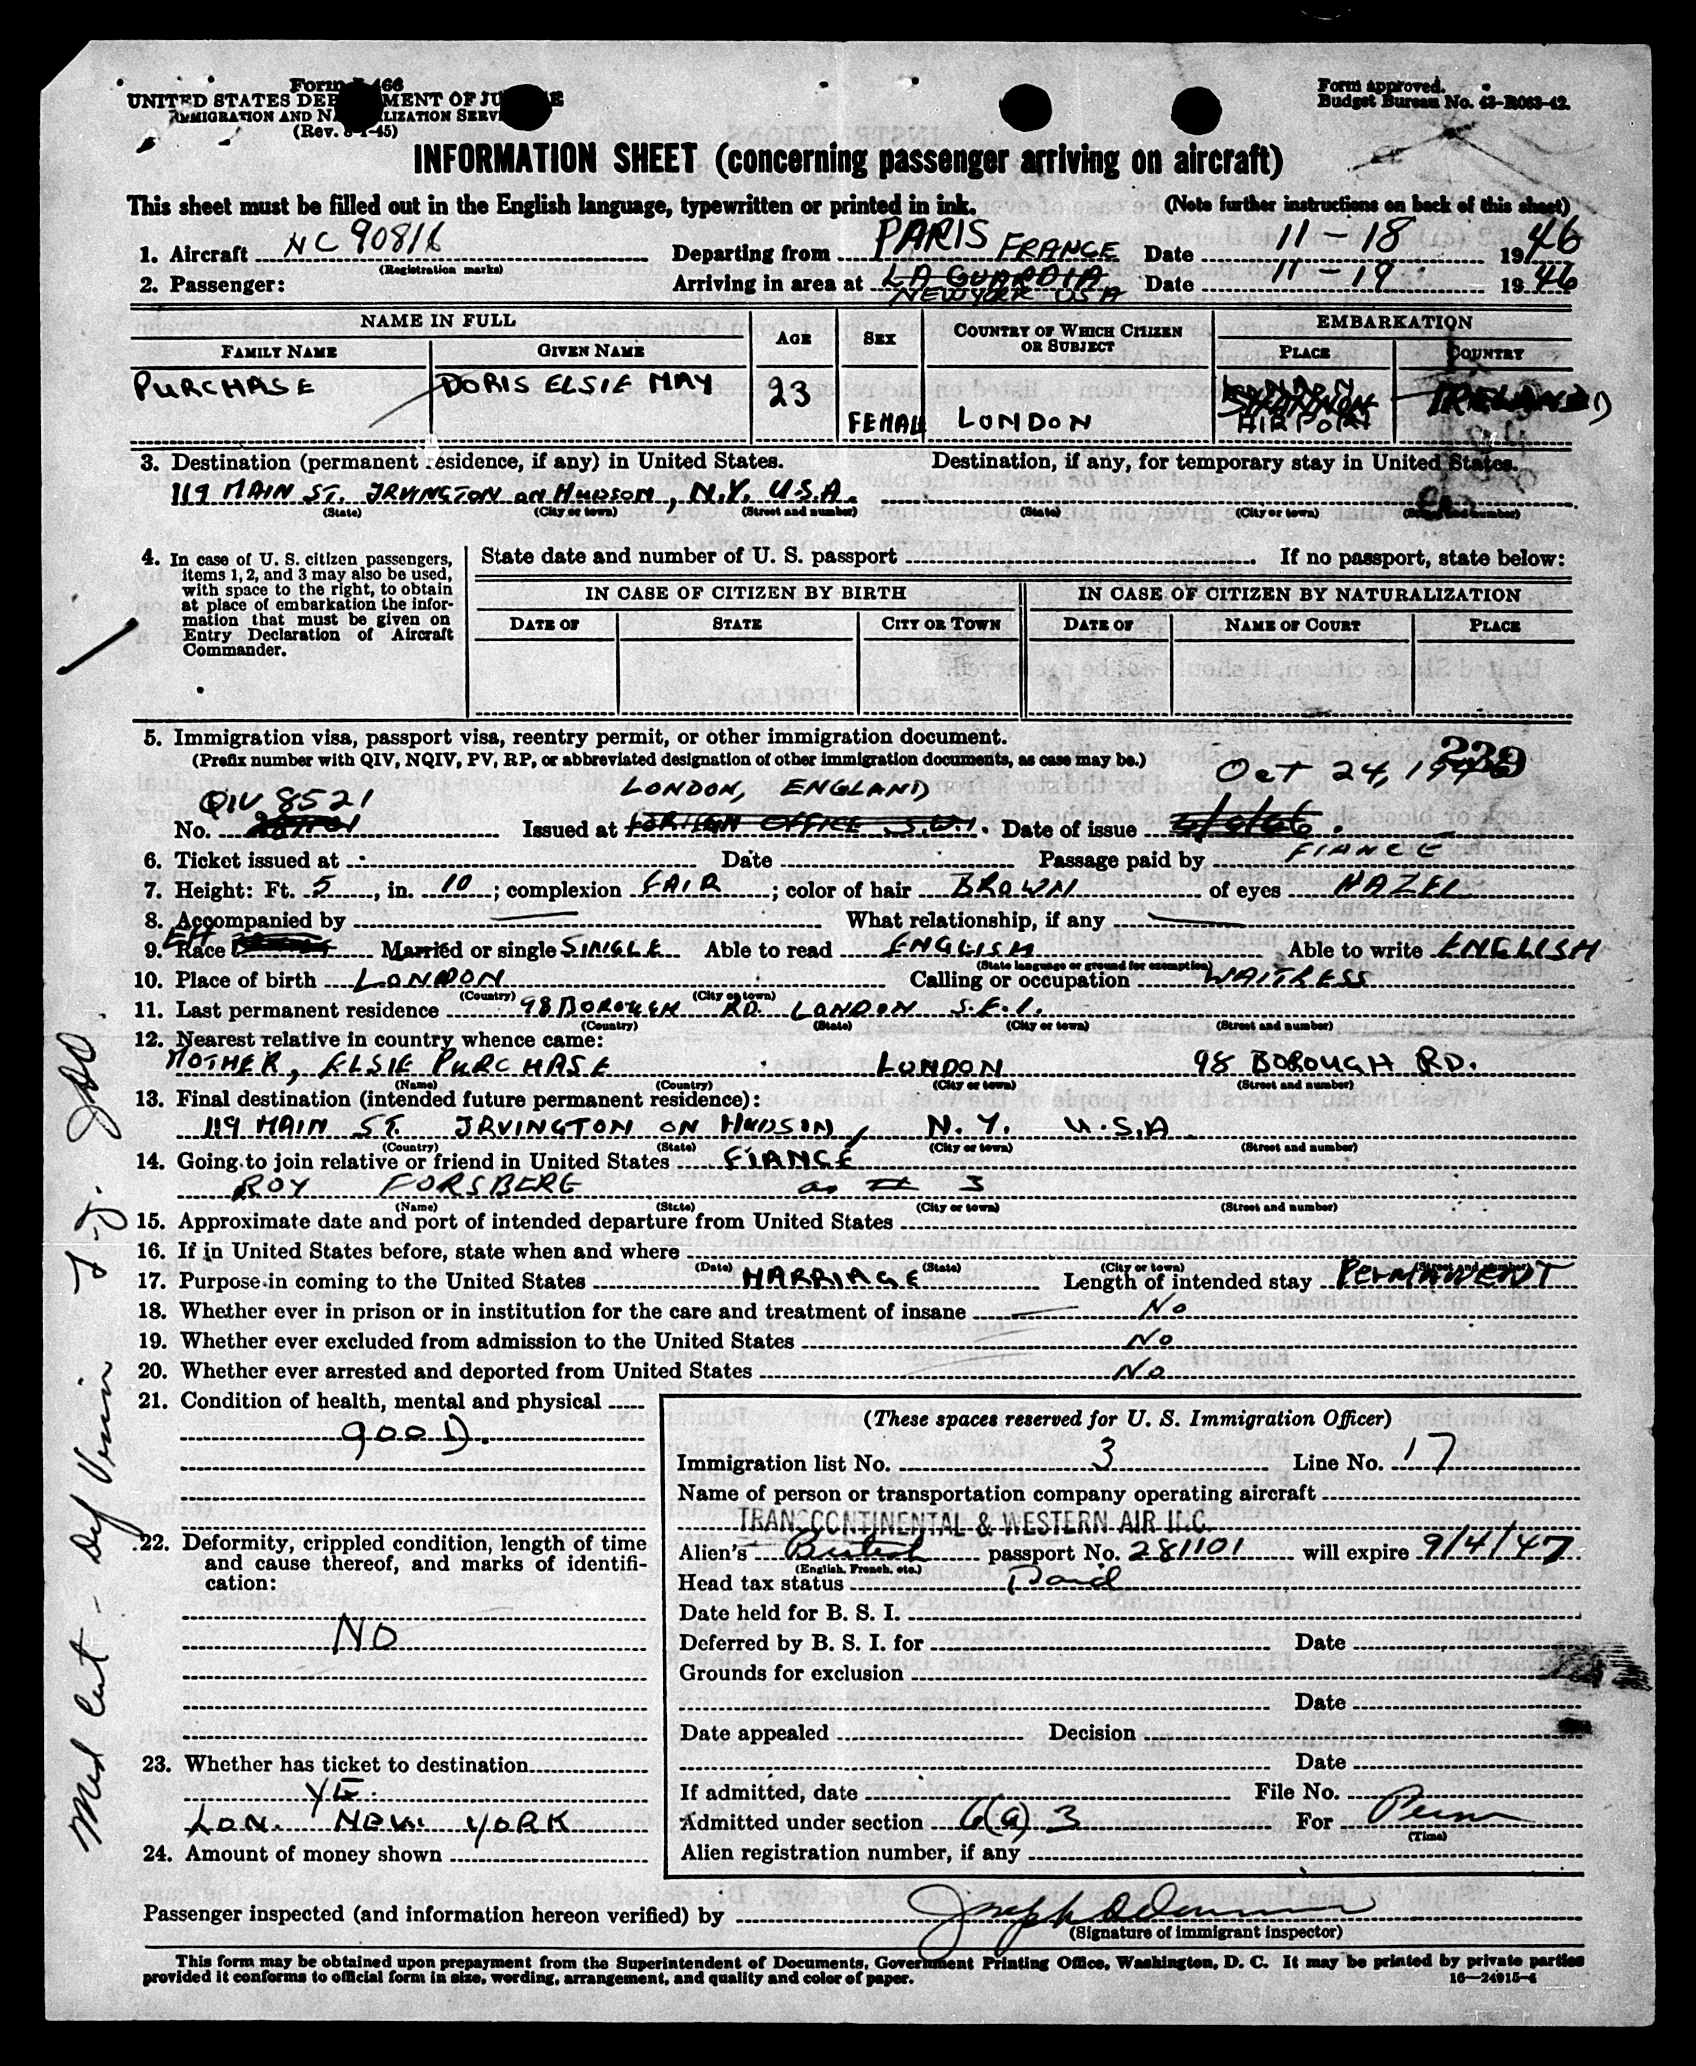 Form I-466
UNITED STATES DEPARTMENT OF JUSTICE
IMMIGRATION AND NATURALIZATION SERVICE
(Rev. 8-1-45)
Form approved.
Budget Bureau No. 43-R063-42.
INFORMATION SHEET (concerning passenger arriving on aircraft)
This sheet must be filled out in the English language, typewritten or printed in ink. (Note further instructions on back of this sheet)
1. Aircraft NC 90816 Departing from PARIS FRANCE Date 11-18 1946
(Registration marks)
2. Passenger: Arriving in area at LA GUARDIA Date 11-19 1946
NEW YORK USA
NAME IN FULL AGE SEX COUNTRY OF WHICH CITIZEN OR SUBJECT EMBARKATION
FAMILY NAME GIVEN NAME PLACE COUNTRY
PURCHASE DORIS ELSIE MAY 23 FEMALE LONDON LONDON SHANNON AIRPORT IRELAND
3. Destination (permanent residence, if any) in United States. Destination, if any, for temporary stay in United States.
119 MAIN ST. IRVINGTON ON HUDSON, N.Y. U.S.A.
(State) (City or town) (Street and number) (State) (City or town) (Street and number)
4. In case of U. S. citizen passengers, items 1, 2, and 3 may also be used, with space to the right, to obtain at place of embarkation the information that must be given on Entry Declaration of Aircraft Commander.
State date and number of U. S. passport If no passport, state below:
IN CASE OF CITIZEN BY BIRTH IN CASE OF CITIZEN BY NATURALIZATION
DATE OF STATE CITY OR TOWN DATE OF NAME OF COURT PLACE
5. Immigration visa, passport visa, reentry permit, or other immigration document.
(Prefix number with QIV, NQIV, PV, RP, or abbreviated designation of other immigration documents, as case may be.)
239
QIV 8521 LONDON, ENGLAND Oct 24, 1946
No. Issued at FOREIGN OFFICE S.W.1. Date of issue
6. Ticket issued at Date Passage paid by FIANCE
7. Height: Ft. 5, in. 10; complexion FAIR; color of hair BROWN of eyes HAZEL
8. Accompanied by What relationship, if any
EH
9. Race Married or single SINGLE Able to read ENGLISH Able to write ENGLISH
(State language or ground for exemption)
10. Place of birth LONDON Calling or occupation WAITRESS
(Country) (City or town)
11. Last permanent residence 98 BOROUGH RD. LONDON S.E.1.
(Country) (State) (City or town) (Street and number)
12. Nearest relative in country whence came:
MOTHER, ELSIE PURCHASE LONDON 98 BOROUGH RD.
(Name) (Country) (City or town) (Street and number)
13. Final destination (intended future permanent residence):
119 MAIN ST. IRVINGTON ON HUDSON, N.Y. U.S.A
(Country) (State) (City or town) (Street and number)
14. Going to join relative or friend in United States FIANCE
ROY FORSBERG as # 3
(Name) (State) (City or town) (Street and number)
15. Approximate date and port of intended departure from United States
16. If in United States before, state when and where
(Date) (State) (City or town) (Street and number)
17. Purpose in coming to the United States MARRIAGE Length of intended stay PERMANENT
18. Whether ever in prison or in institution for the care and treatment of insane No
19. Whether ever excluded from admission to the United States No
20. Whether ever arrested and deported from United States No
21. Condition of health, mental and physical
GOOD.
22. Deformity, crippled condition, length of time and cause thereof, and marks of identification:
NO
23. Whether has ticket to destination
YE.
LON. NEW. YORK
24. Amount of money shown
(These spaces reserved for U. S. Immigration Officer)
Immigration list No. 3 Line No. 17
Name of person or transportation company operating aircraft
TRANSCONTINENTAL & WESTERN AIR INC.
Alien's British passport No. 281101 will expire 9/4/47
(English, French, etc.)
Head tax status Paid
Date held for B. S. I.
Deferred by B. S. I. for Date
Grounds for exclusion
Date
Date appealed Decision
Date
If admitted, date File No.
Admitted under section 6(a) 3 For Perm
(Time)
Alien registration number, if any
Passenger inspected (and information hereon verified) by
(Signature of immigrant inspector)
This form may be obtained upon prepayment from the Superintendent of Documents, Government Printing Office, Washington, D. C. It may be printed by private parties
provided it conforms to official form in size, wording, arrangement, and quality and color of paper. 16—24915-4
Med Cert - Def Vision